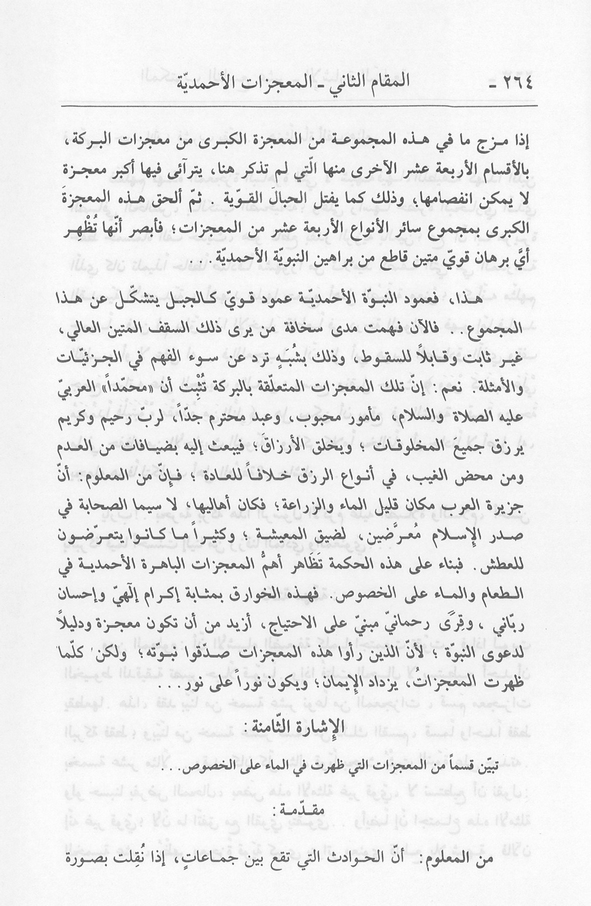 ٢٦٤ - المقام الثاني - المعجزات الأحمديّة
إذا مـزج ما في هـذه المجموعـة من المعجزة الكبرى من معجزات البـركة،
بالأقسام الأربعة عشر الآخرى منها الّتي لم تذكر هنا، يترآئى فيها أكبر معجـزة
لا يمكن انفصامها؛ وذلك كما يفتل الحبالَ القـويّة . ثمّ ألحق هـذه المعجزةَ
الكبرى بمجموع سائر الأنواع الأربعة عشر من المعجزات؛ فأبصر أنّها تُظْهِر
أيَّ برهان قويّ متين قاطع من براهين النبويّة الأحمديّة...
هـذا، فعمود النبـوّة الأحمديّـة عمود قـويّ كـالجبـل يتشكّـل عن هـذا
المجموع.. فالآن فهمت مدى سخافة من يرى ذلك السقف المتين العالي،
غيـر ثابت وقـابلاً للسقوط، وذلك بشُبَـهٍ ترد عن سـوء الفهم في الجزئيّـات
والأمثلة. نعم: إنّ تلك المعجزات المتعلّقة بالبركة تُثْبِت أن «محمّداً» العربيّ
عليه الصلاة والسّلام، مأمور محبوب، وعبد محترم جدّاً، لربّ رحيم وكريم
يرزق جميعَ المخلوقات ؛ ويخلق الأرزاقَ؛ فيبعث إليه بضيافات من العدم
ومن محض الغيب، في أنواع الرزق خلافاً للعادة ؛ فإنّ من المعلوم: أنّ
جزيرة العرب مكان قليل الماء والزراعة؛ فكان أهاليها، لا سيما الصحابة في
صدر الإسلام مُعرَّضين، لضيق المعيشة ؛ وكثيراً ما كـانـوا يتعـرّضـون
للعطش. فبناء على هذه الحكمة تَظَاهر أهمُّ المعجزات الباهرة الأحمدية في
الـطعام والمـاء على الخصوص. فهـذه الخوارق بمثابة إكـرام إلٓهيّ وإحسان
ربّاني ، وقِرًى رحمانيّ مبنيّ على الاحتياج، أزيد من أن تكون معجـزة ودليلاً
لدعوى النبوّة ؛ لأنّ الذين رأوا هذه المعجزات صـدّقوا نبـوّته ؛ ولكن كلّما
ظهرت المعجزاتُ، يزداد الإيمان؛ ويكون نوراً على نور...
الإشارة الثّامنة:
تبيّن قسماً من المعجزات التي ظهرت في الماء على الخصوص...
مقـدّمـة:
من المعلوم: أنّ الحـوادث التي تقع بين جمـاعاتٍ، إذا نُقِلت بصـورة